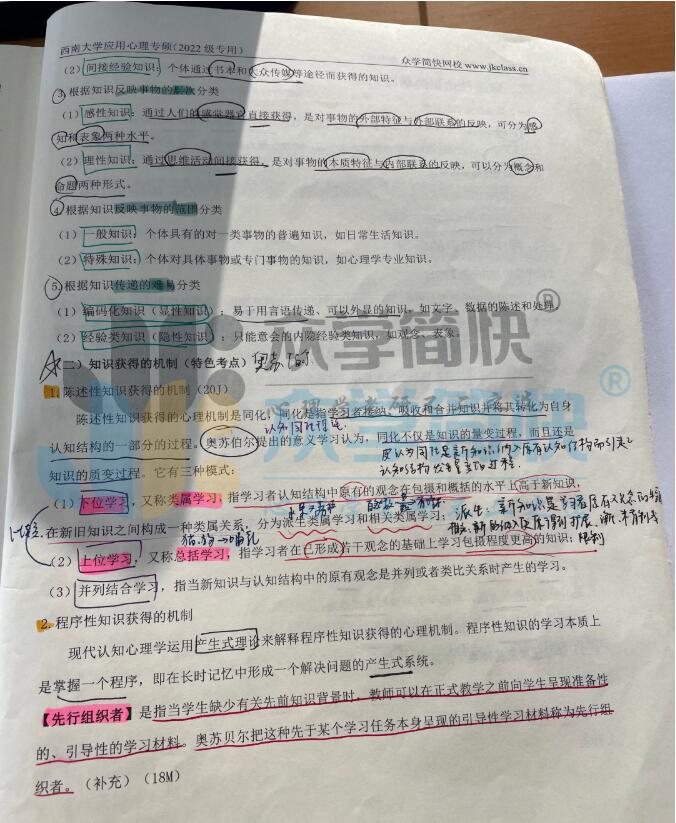 西南大学应用心理专硕(2022 级专用)
众学简快网校 www.jkclass.cn
(2)间接经验知识:个体通过书本和大众传媒等途径而获得的知识。
3.根据知识反映事物的层次分类
(1)感性知识:通过人们的感觉器官直接获得,是对事物的外部特征与外部联系的反映,可分为感
知和表象两种水平。
(2)理性知识:通过思维活动间接获得,是对事物的本质特征与内部联系的反映,可以分为概念和
命题两种形式。
4.根据知识反映事物的范围分类
(1)一般知识:个体具有的对一类事物的普遍知识,如日常生活知识。
(2)特殊知识:个体对具体事物或专门事物的知识,如心理学专业知识。
5.根据知识传递的难易分类
(1)编码化知识(显性知识):易于用言语传递、可以外显的知识,如文字、数据的陈述和处理。
(2)经验类知识(隐性知识):只能意会的内隐经验类知识,如观念、表象。
众学简快®
(二)知识获得的机制(特色考点)
1.陈述性知识获得的机制(20J)
陈述性知识获得的心理机制是同化,同化是指学习者接纳、吸收和合并知识并将其转化为自身
认知结构的一部分的过程。奥苏伯尔提出的意义学习认为,同化不仅是知识的量变过程,而且还是
知识的质变过程。它有三种模式:
(1)下位学习,又称类属学习,指学习者认知结构中原有的观念在包摄和概括的水平上高于新知识,
在新旧知识之间构成一种类属关系,分为派生类属学习和相关类属学习;
猪,狗→哺乳
(2)上位学习,又称总括学习,指学习者在已形成若干观念的基础上学习包摄程度更高的知识;
限制
(3)并列结合学习,指当新知识与认知结构中的原有观念是并列或者类比关系时产生的学习。
2.程序性知识获得的机制
现代认知心理学运用产生式理论来解释程序性知识获得的心理机制。程序性知识的学习本质上
是掌握一个程序,即在长时记忆中形成一个解决问题的产生式系统。
【先行组织者】是指当学生缺少有关先前知识背景时,教师可以在正式教学之前向学生呈现准备性
的、引导性的学习材料。奥苏贝尔把这种先于某个学习任务本身呈现的引导性学习材料称为先行组
织者。(补充)(18M)